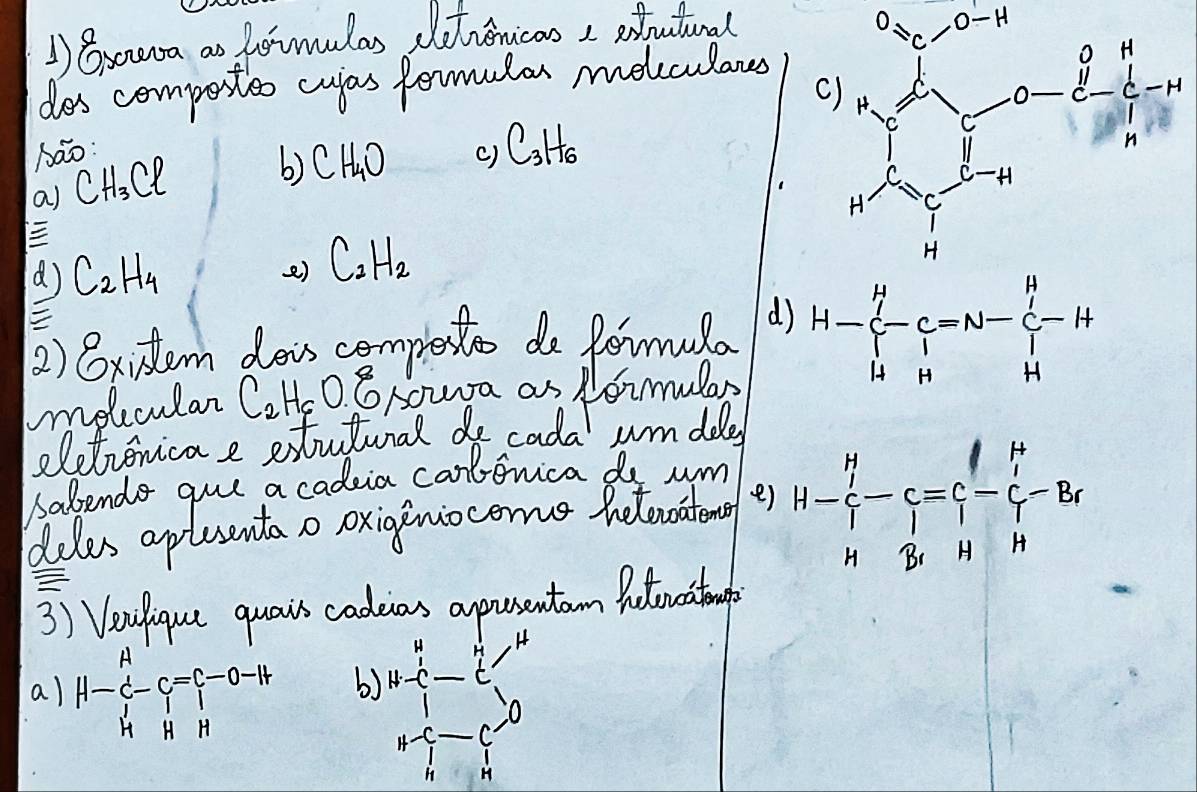 1) Escreva as fórmulas eletrônicas e estrutural
dos compostos cujas formulas moleculares
são:
a) CH₃Cl b) CH₄O c) C₃H₆
d) C₂H₄ e) C₂H₂
2) Existem dois composto de fórmula
molecular C₂H₆O. Escreva as fórmulas
eletrônica e estrutural de cada um deles
sabendo que a cadeia carbônica de um
deles apresenta o oxigênio como heteroátomo
3) Verifique quais cadeias apresentam heteroátomos:
H H H H
a) H-C-C=C-O-H b) H-C-C
H H H O
H-C-C
H H
O O-H
C O H
c) H C O-C-C-H
C C H
C C-H
H C
H
H H
d) H-C-C=N-C-H
H H H
H H
e) H-C-C=C-C-Br
H Br H H